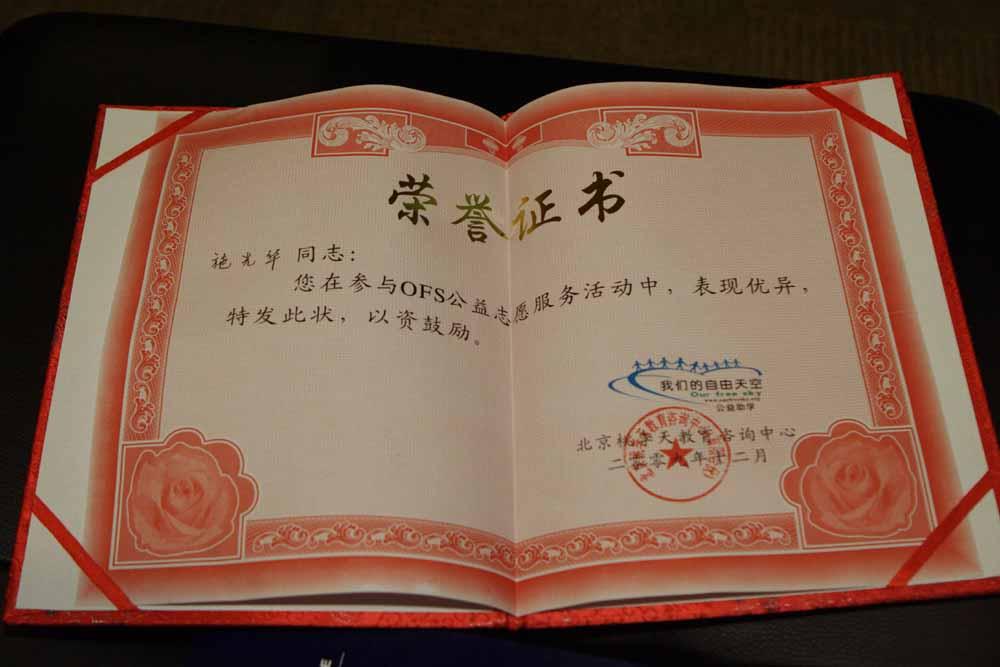 荣誉证书
施光华 同志:
您在参与OFS公益志愿服务活动中，表现优异，
特发此状，以资鼓励。
我们的自由天空
Our free sky
公益助学
天教育咨询中心
二零 年十二月